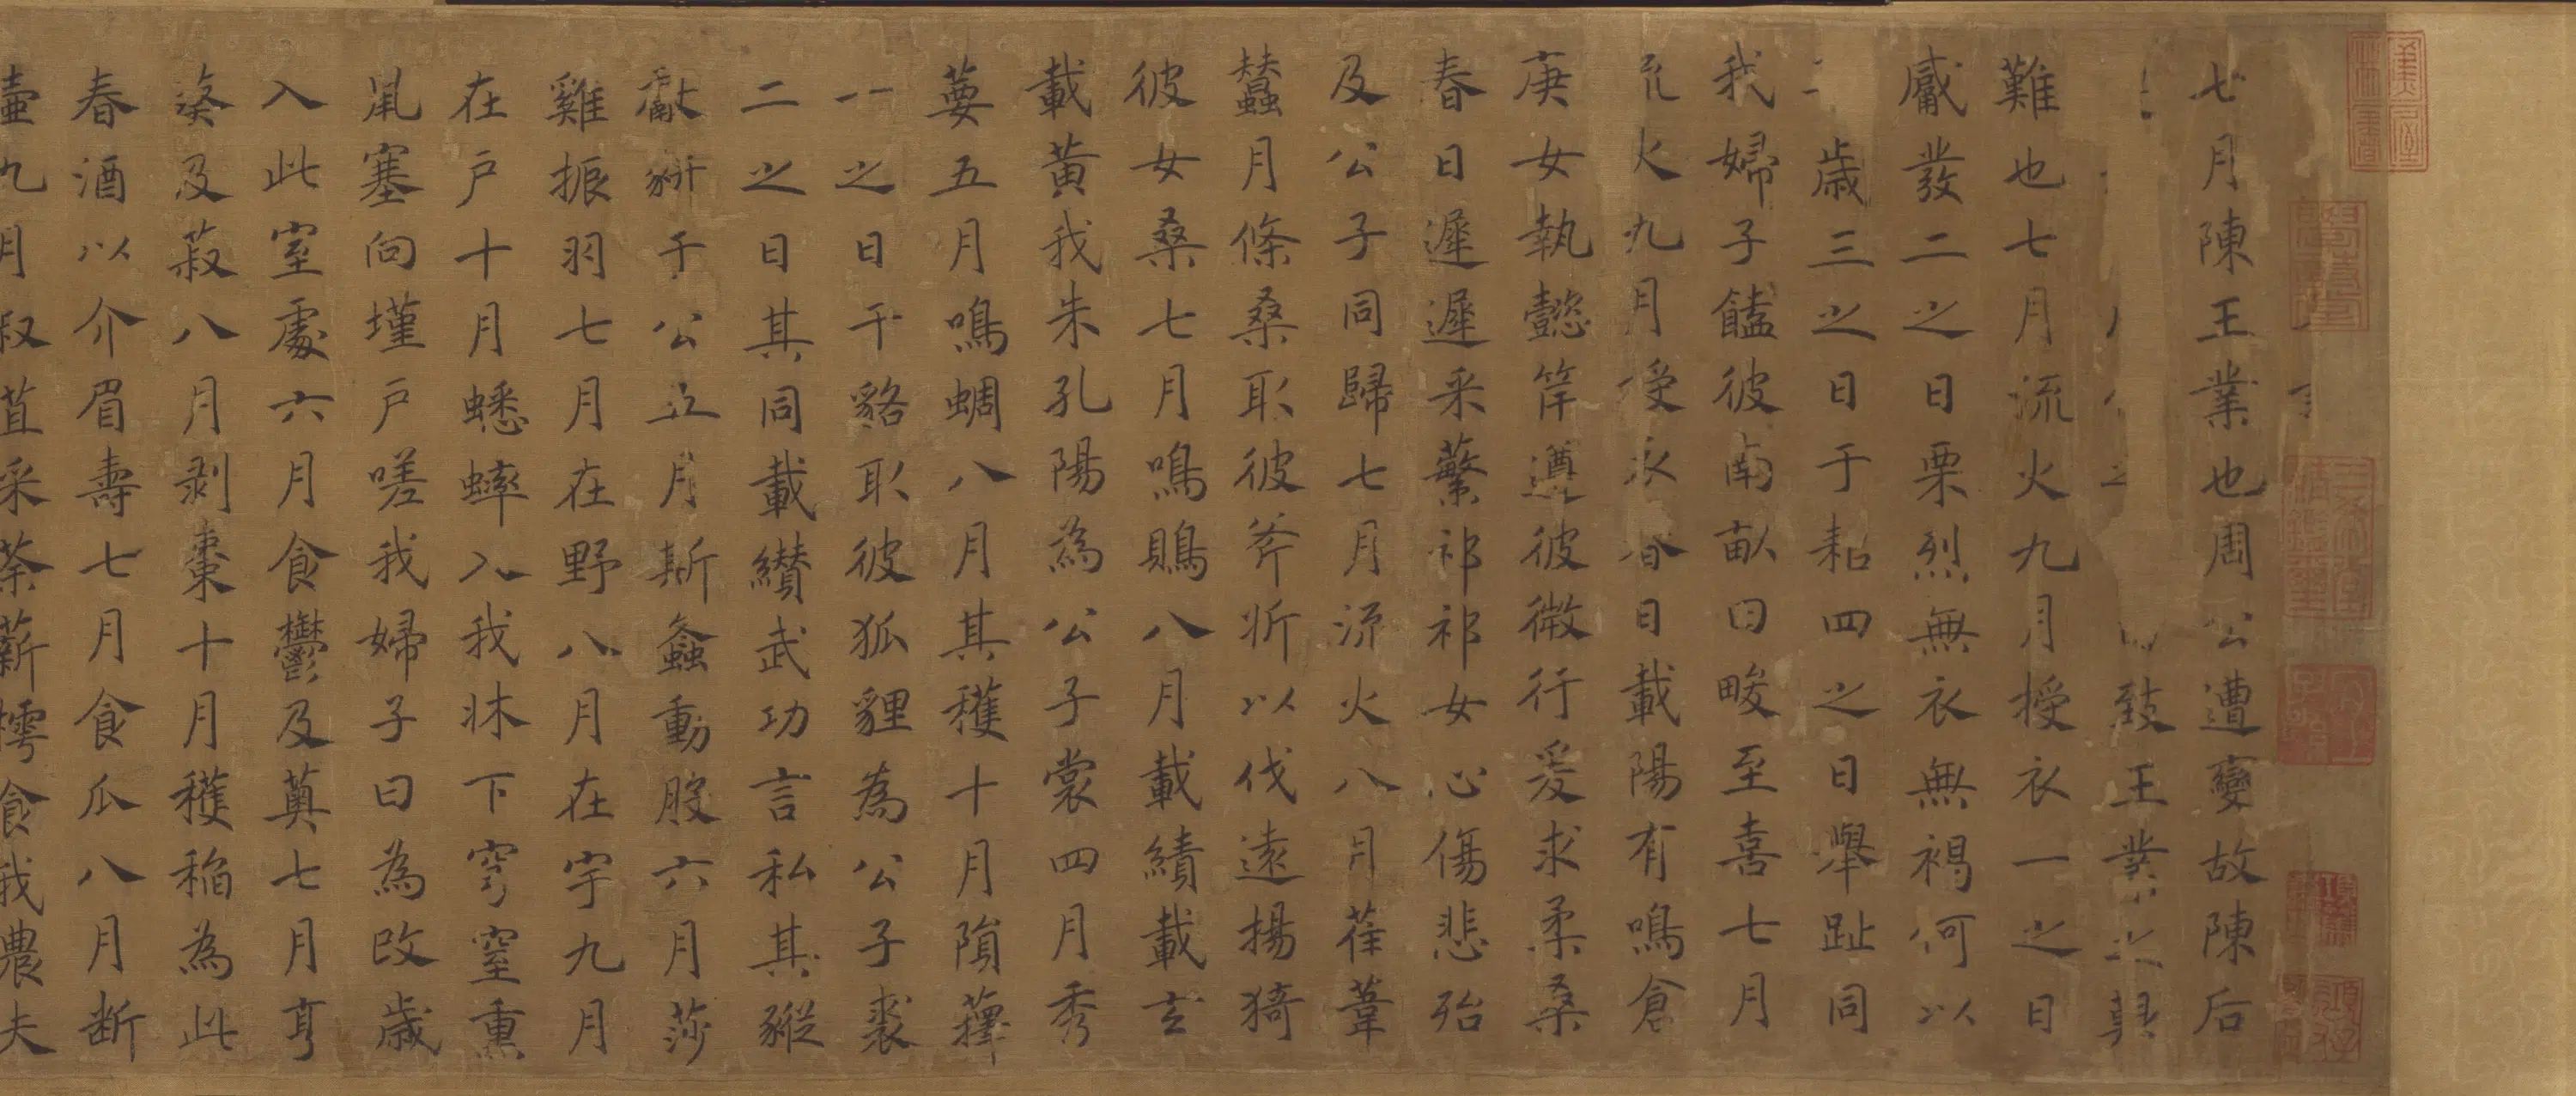 七月陳王業也周公遭變故陳后
致王業之艱
難也七月流火九月授衣一之日
觱發二之日栗烈無衣無褐何以
歲三之日于耜四之日舉趾同
我婦子饁彼南畝曰畯至喜七月
流火九月受衣春日載陽有鳴倉
庚女執懿筐遵彼微行爰求柔桑
春日遲遲采蘩祁祁女心傷悲殆
及公子同歸七月流火八月萑葦
蠶月條桑取彼斧斨以伐遠揚猗
彼女桑七月鳴鵙八月載績載玄
載黃我朱孔陽為公子裳四月秀
葽五月鳴蜩八月其穫十月隕蘀
一之日于貉取彼狐貍為公子裘
二之日其同載纘武功言私其豵
獻豜于公五月斯螽動股六月莎
雞振羽七月在野八月在宇九月
在戶十月蟋蟀入我牀下穹窒熏
鼠塞向墐戶嗟我婦子曰為改歲
入此室處六月食鬱及薁七月亨
葵及菽八月剝棗十月穫稻為此
春酒以介眉壽七月食瓜八月斷
壺九月叔苴采荼薪樗食我農夫